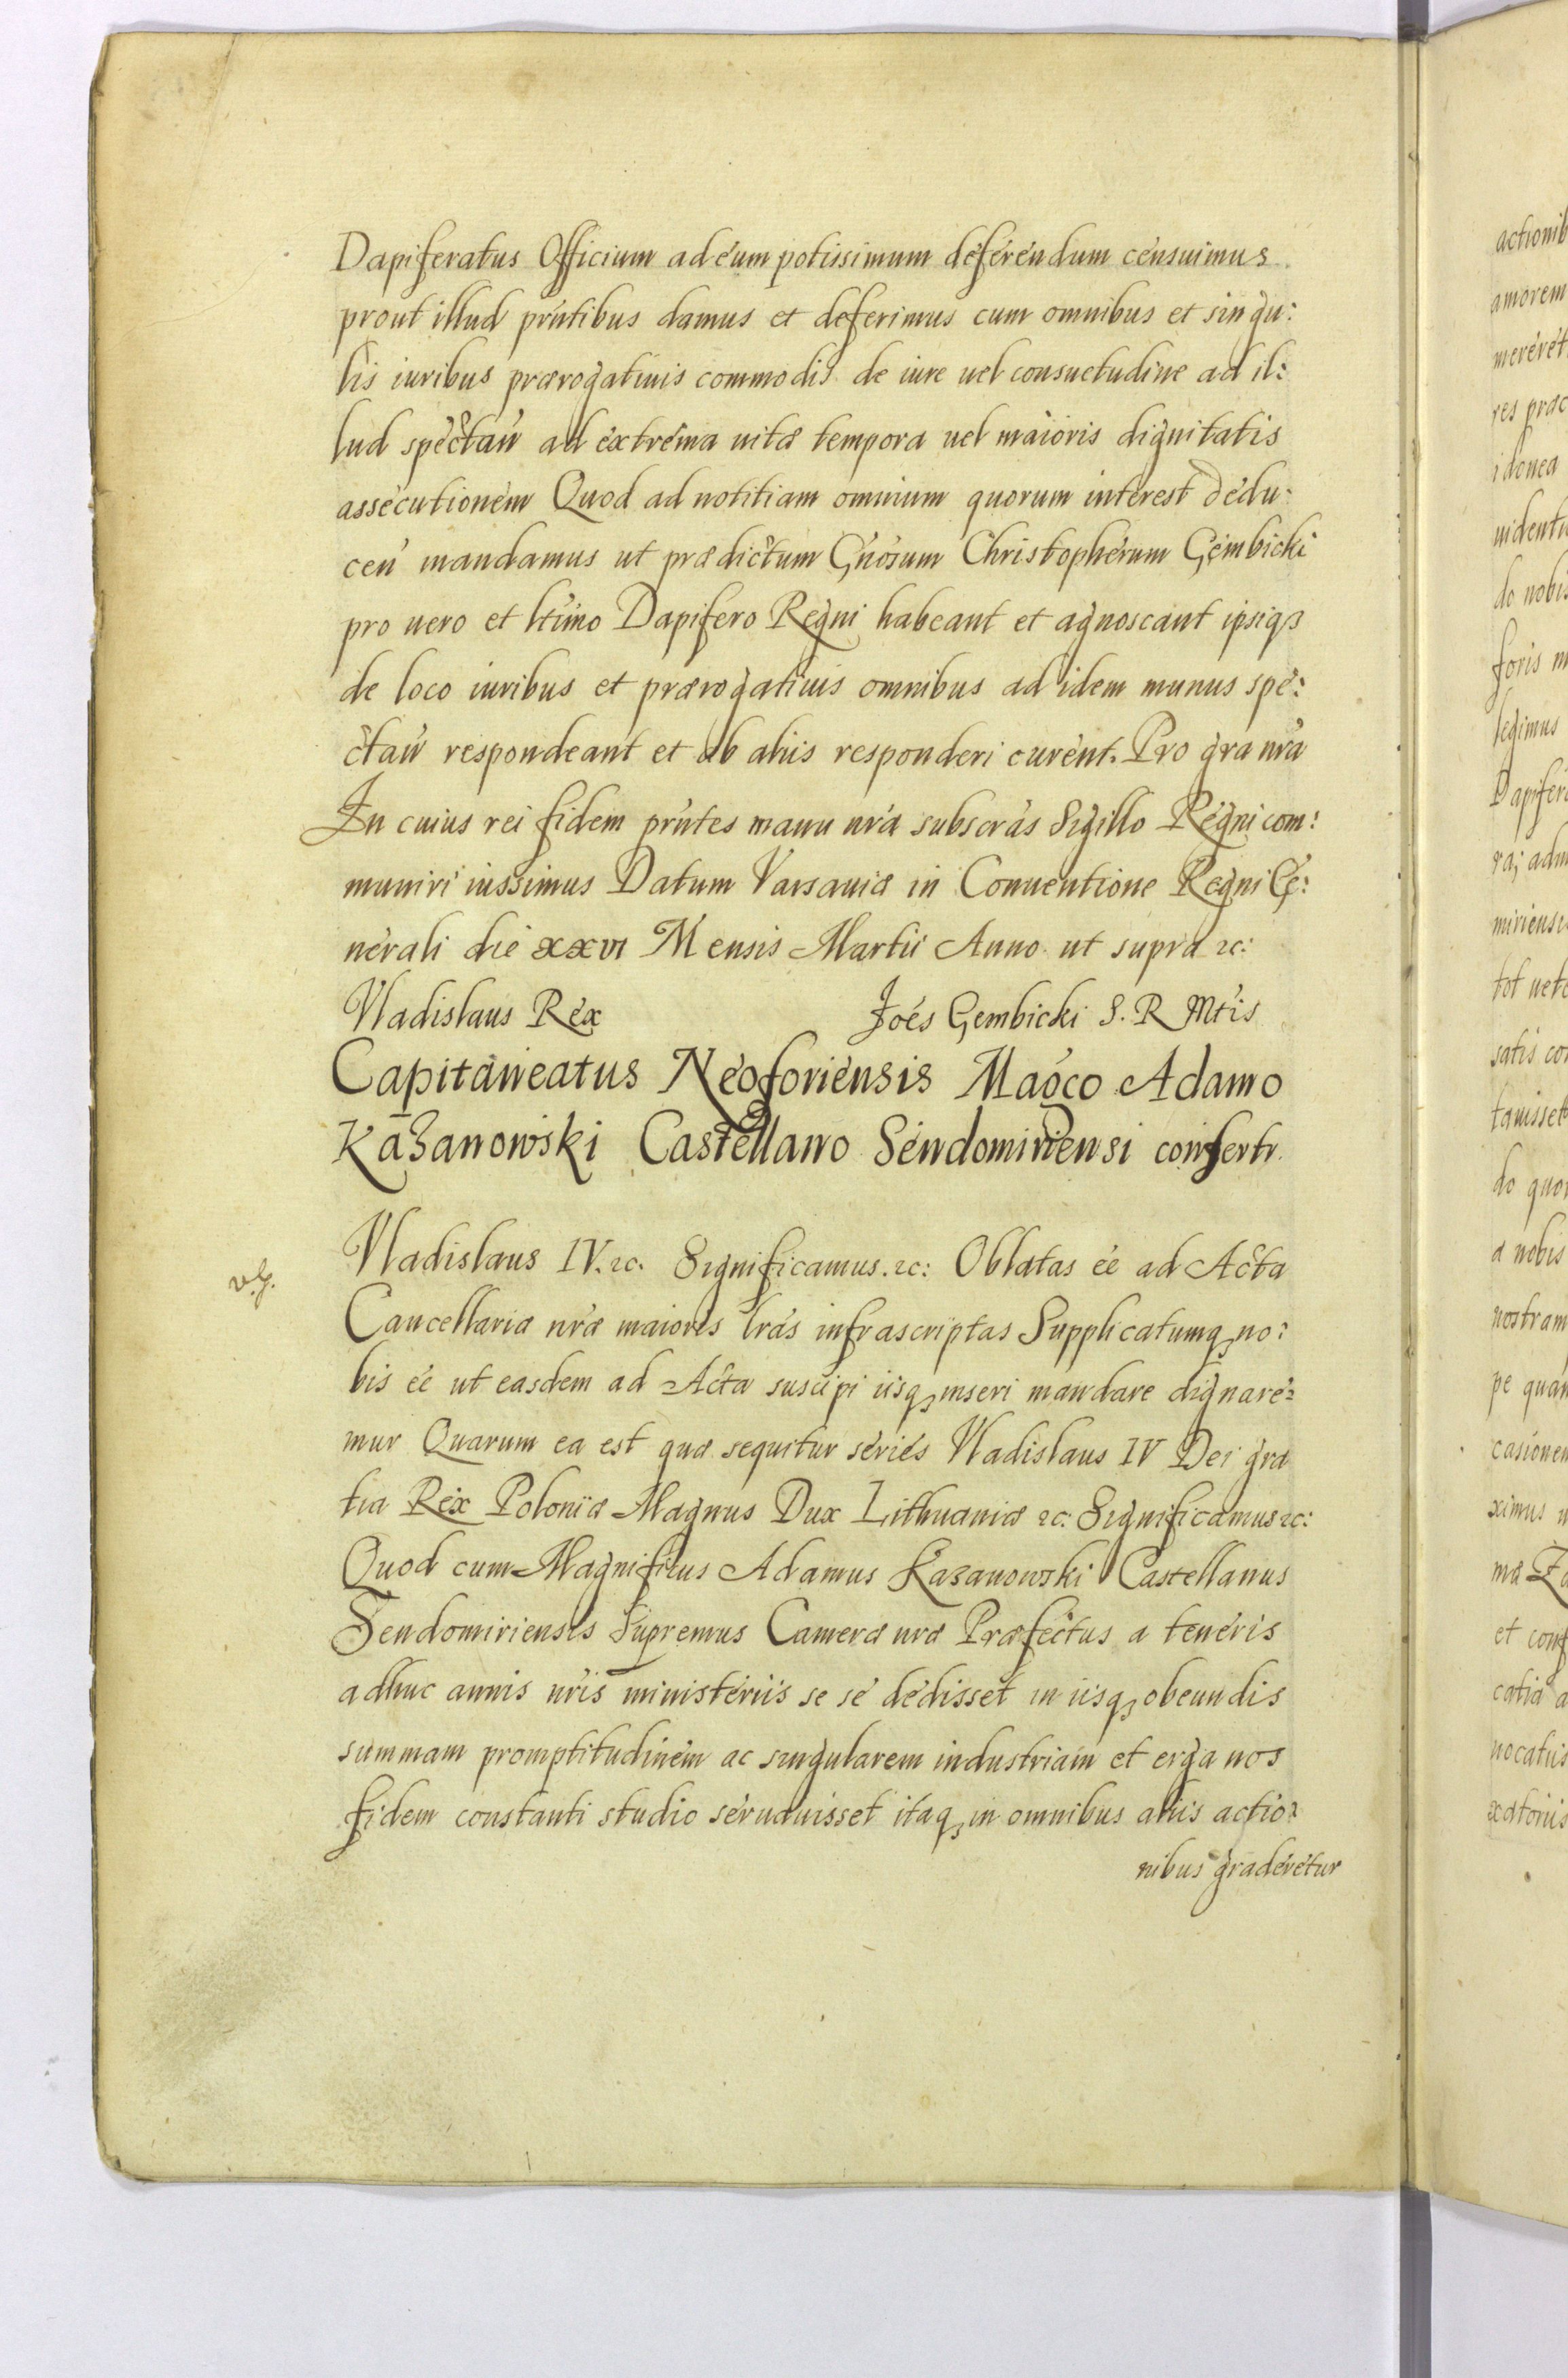 Dapiferatus Officium ad eum potissimum deferendum censuimus
prout illud pńtibus damus et deferimus cum omnibus et singu:
lis iuribus prærogatiuis commodis de iure uel consuetudine ad il:
lud spectań ad extrema uitæ tempora uel maioris dignitatis
assecutionem Quod ad notitiam omnium quorum interest dedu:
ceń mandamus ut prædictum Gńosum Christopherum Gembicki
pro uero et ltimo Dapifero Regni habeant et agnoscant ipsiqꝫ
de loco iuribus et prærogatiuis omnibus ad idem munus spe:
ctań respondeant et ab aliis responderi curent. Pro gra nra
In cuius rei fidem pńtes manu nra subscras Sigillo Regni com:
muniri iussimus Datum Varsauiæ in Conuentione Regni Ge:
nerali die xxvi Mensis Martii Anno ut supra ꝛc:
Vladislaus Rex
Joes Gembicki S. R Mtis
Capitaneatus Neoforiensis Magco Adamo
Kazanowski Castellano Sendomiriensi confertr
Vladislaus IV. ꝛc. Significamus. ꝛc: Oblatas ee ad Acta
v.g.
Cancellariæ nræ maioris lras infrascriptas Supplicatumqꝫ no:
bis ee ut easdem ad Acta suscipi iisqꝫ inseri mandare dignare:
mur Quarum ea est quæ sequitur series Vladislaus IV Dei gra
tia Rex Poloniæ Magnus Dux Lithuaniæ ꝛc: Significamus ꝛc:
Quod cum Magnificus Adamus Kazanowski Castellanus
Sendomiriensis Supremus Cameræ nræ Præfectus a teneris
adhuc annis nris ministeriis se se dedisset in iisqꝫ obeundis
summam promptitudinem ac singularem industriam et erga nos
fidem constanti studio seruauisset itaqꝫ in omnibus aliis actio:
nibus graderetur
actionib
amorem
mereret
res præc
idonea
uidentu
do nobis
foris m
legimus
Dapifer
ra; adm
miriensi
tot uet
satis co
tauisset
do quo
a nobis
nostram
pe quam
casionem
ximus
ma
et conf
catia a
uocatiis
xatoriis